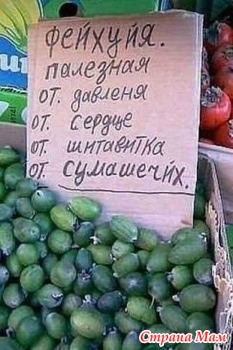 ФЕЙХУЙЯ.
ПАЛЕЗНАЯ
ОТ. ДАВЛЕНЯ
ОТ. СЕРДЦЕ
ОТ. ШИТАВИТКА
ОТ. СУМАШЕЧИХ.
Страна Мам